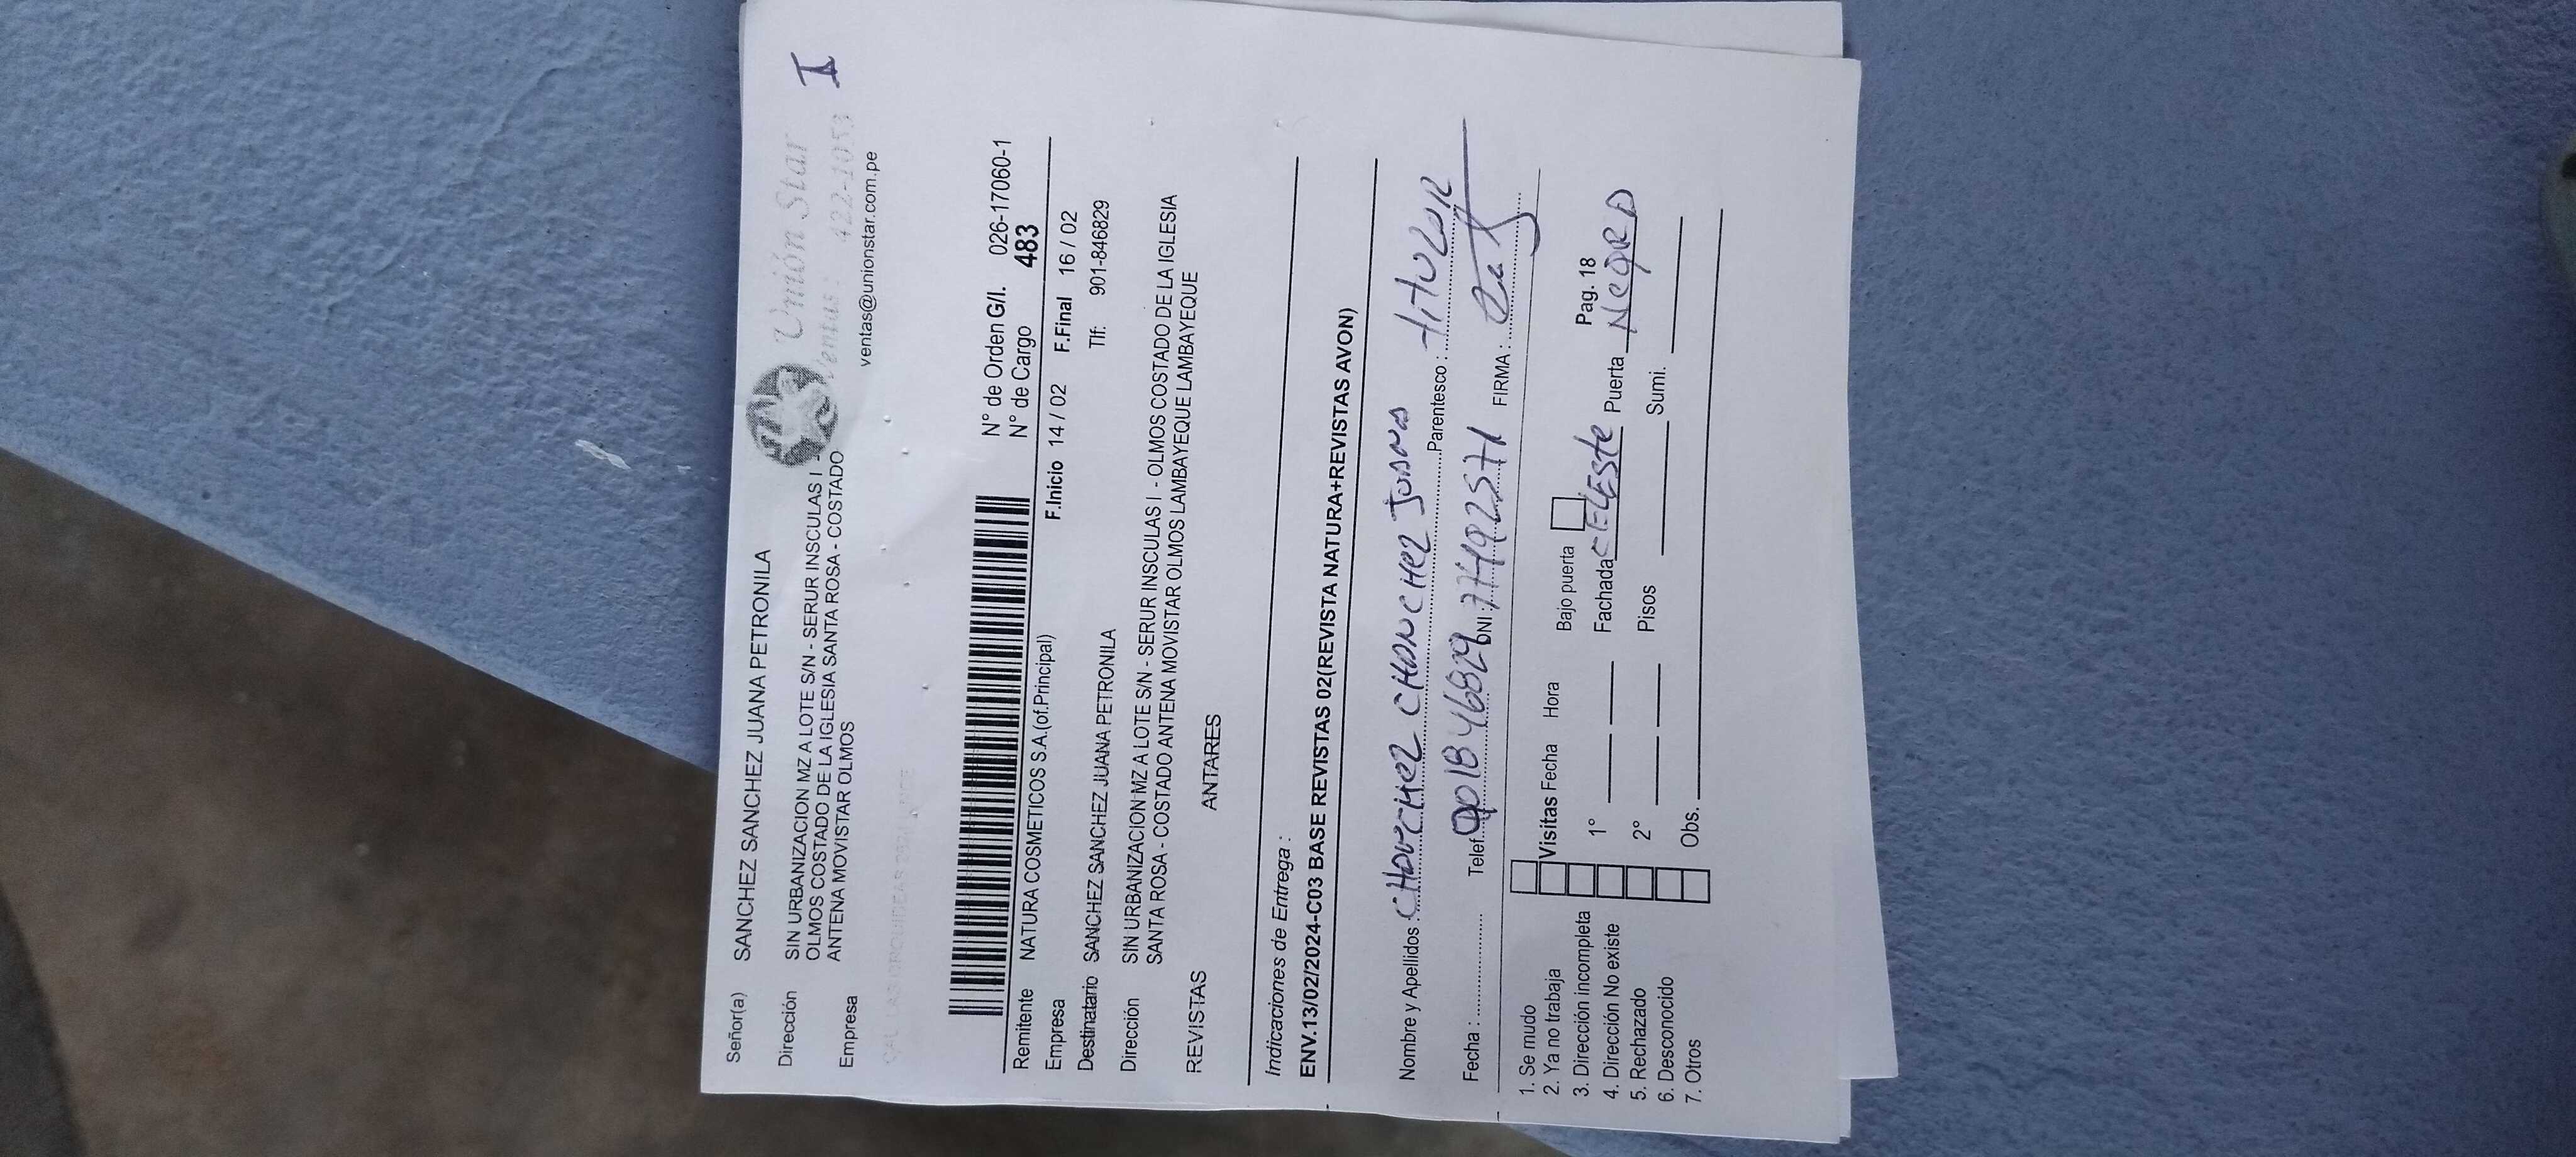 Señor(a) SANCHEZ SANCHEZ JUANA PETRONILA
Unión Star I
Dirección SIN URBANIZACION MZ A LOTE S/N - SERUR INSCULAS I -
OLMOS COSTADO DE LA IGLESIA SANTA ROSA - COSTADO
Ventas: 422-1053
Empresa ANTENA MOVISTAR OLMOS
ventas@unionstar.com.pe
N° de Orden G/I. 026-17060-1
N° de Cargo 483
Remitente NATURA COSMETICOS S.A.(of.Principal)
Empresa F.Inicio 14 / 02 F.Final 16 / 02
Destinatario SANCHEZ SANCHEZ JUANA PETRONILA Tlf: 901-846829
Dirección SIN URBANIZACION MZ A LOTE S/N - SERUR INSCULAS I - OLMOS COSTADO DE LA IGLESIA
SANTA ROSA - COSTADO ANTENA MOVISTAR OLMOS LAMBAYEQUE LAMBAYEQUE
REVISTAS ANTARES
Indicaciones de Entrega :
ENV.13/02/2024-C03 BASE REVISTAS 02(REVISTA NATURA+REVISTAS AVON)
Nombre y Apellidos : Parentesco : titular
Fecha : Telef. 901846829 DNI : FIRMA :
1. Se mudo
2. Ya no trabaja Visitas Fecha Hora Bajo puerta
3. Dirección incompleta Pag. 18
4. Dirección No existe 1° Fachada CELESTE Puerta Negra
5. Rechazado
6. Desconocido 2° Pisos Sumi.
7. Otros Obs.